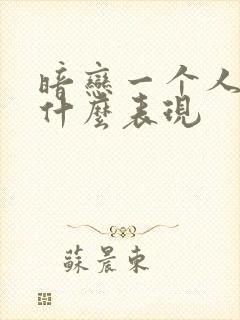 暗戀一个人
什麼表現
蘇晨東